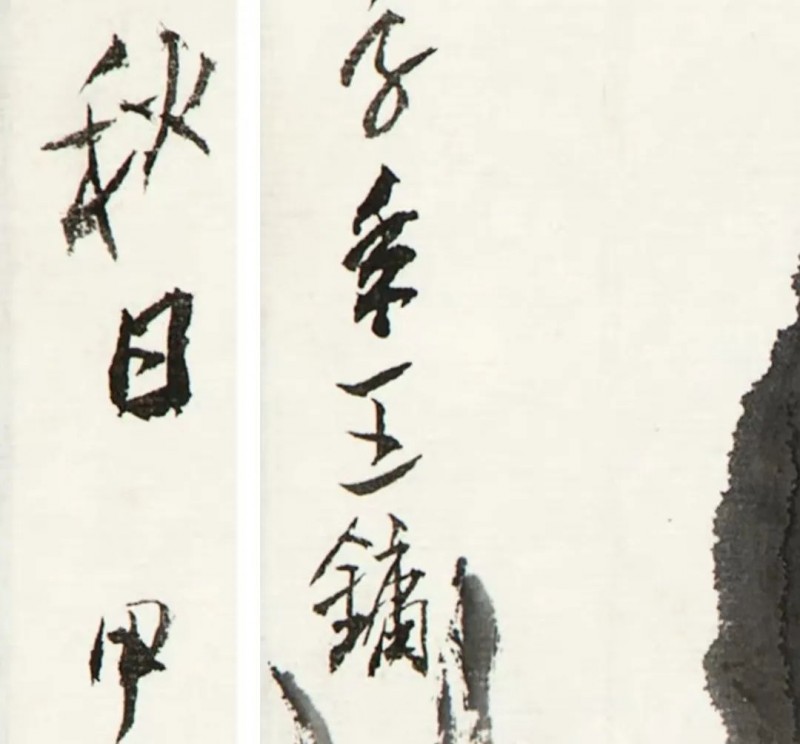 秋日甲
子秊王鏞